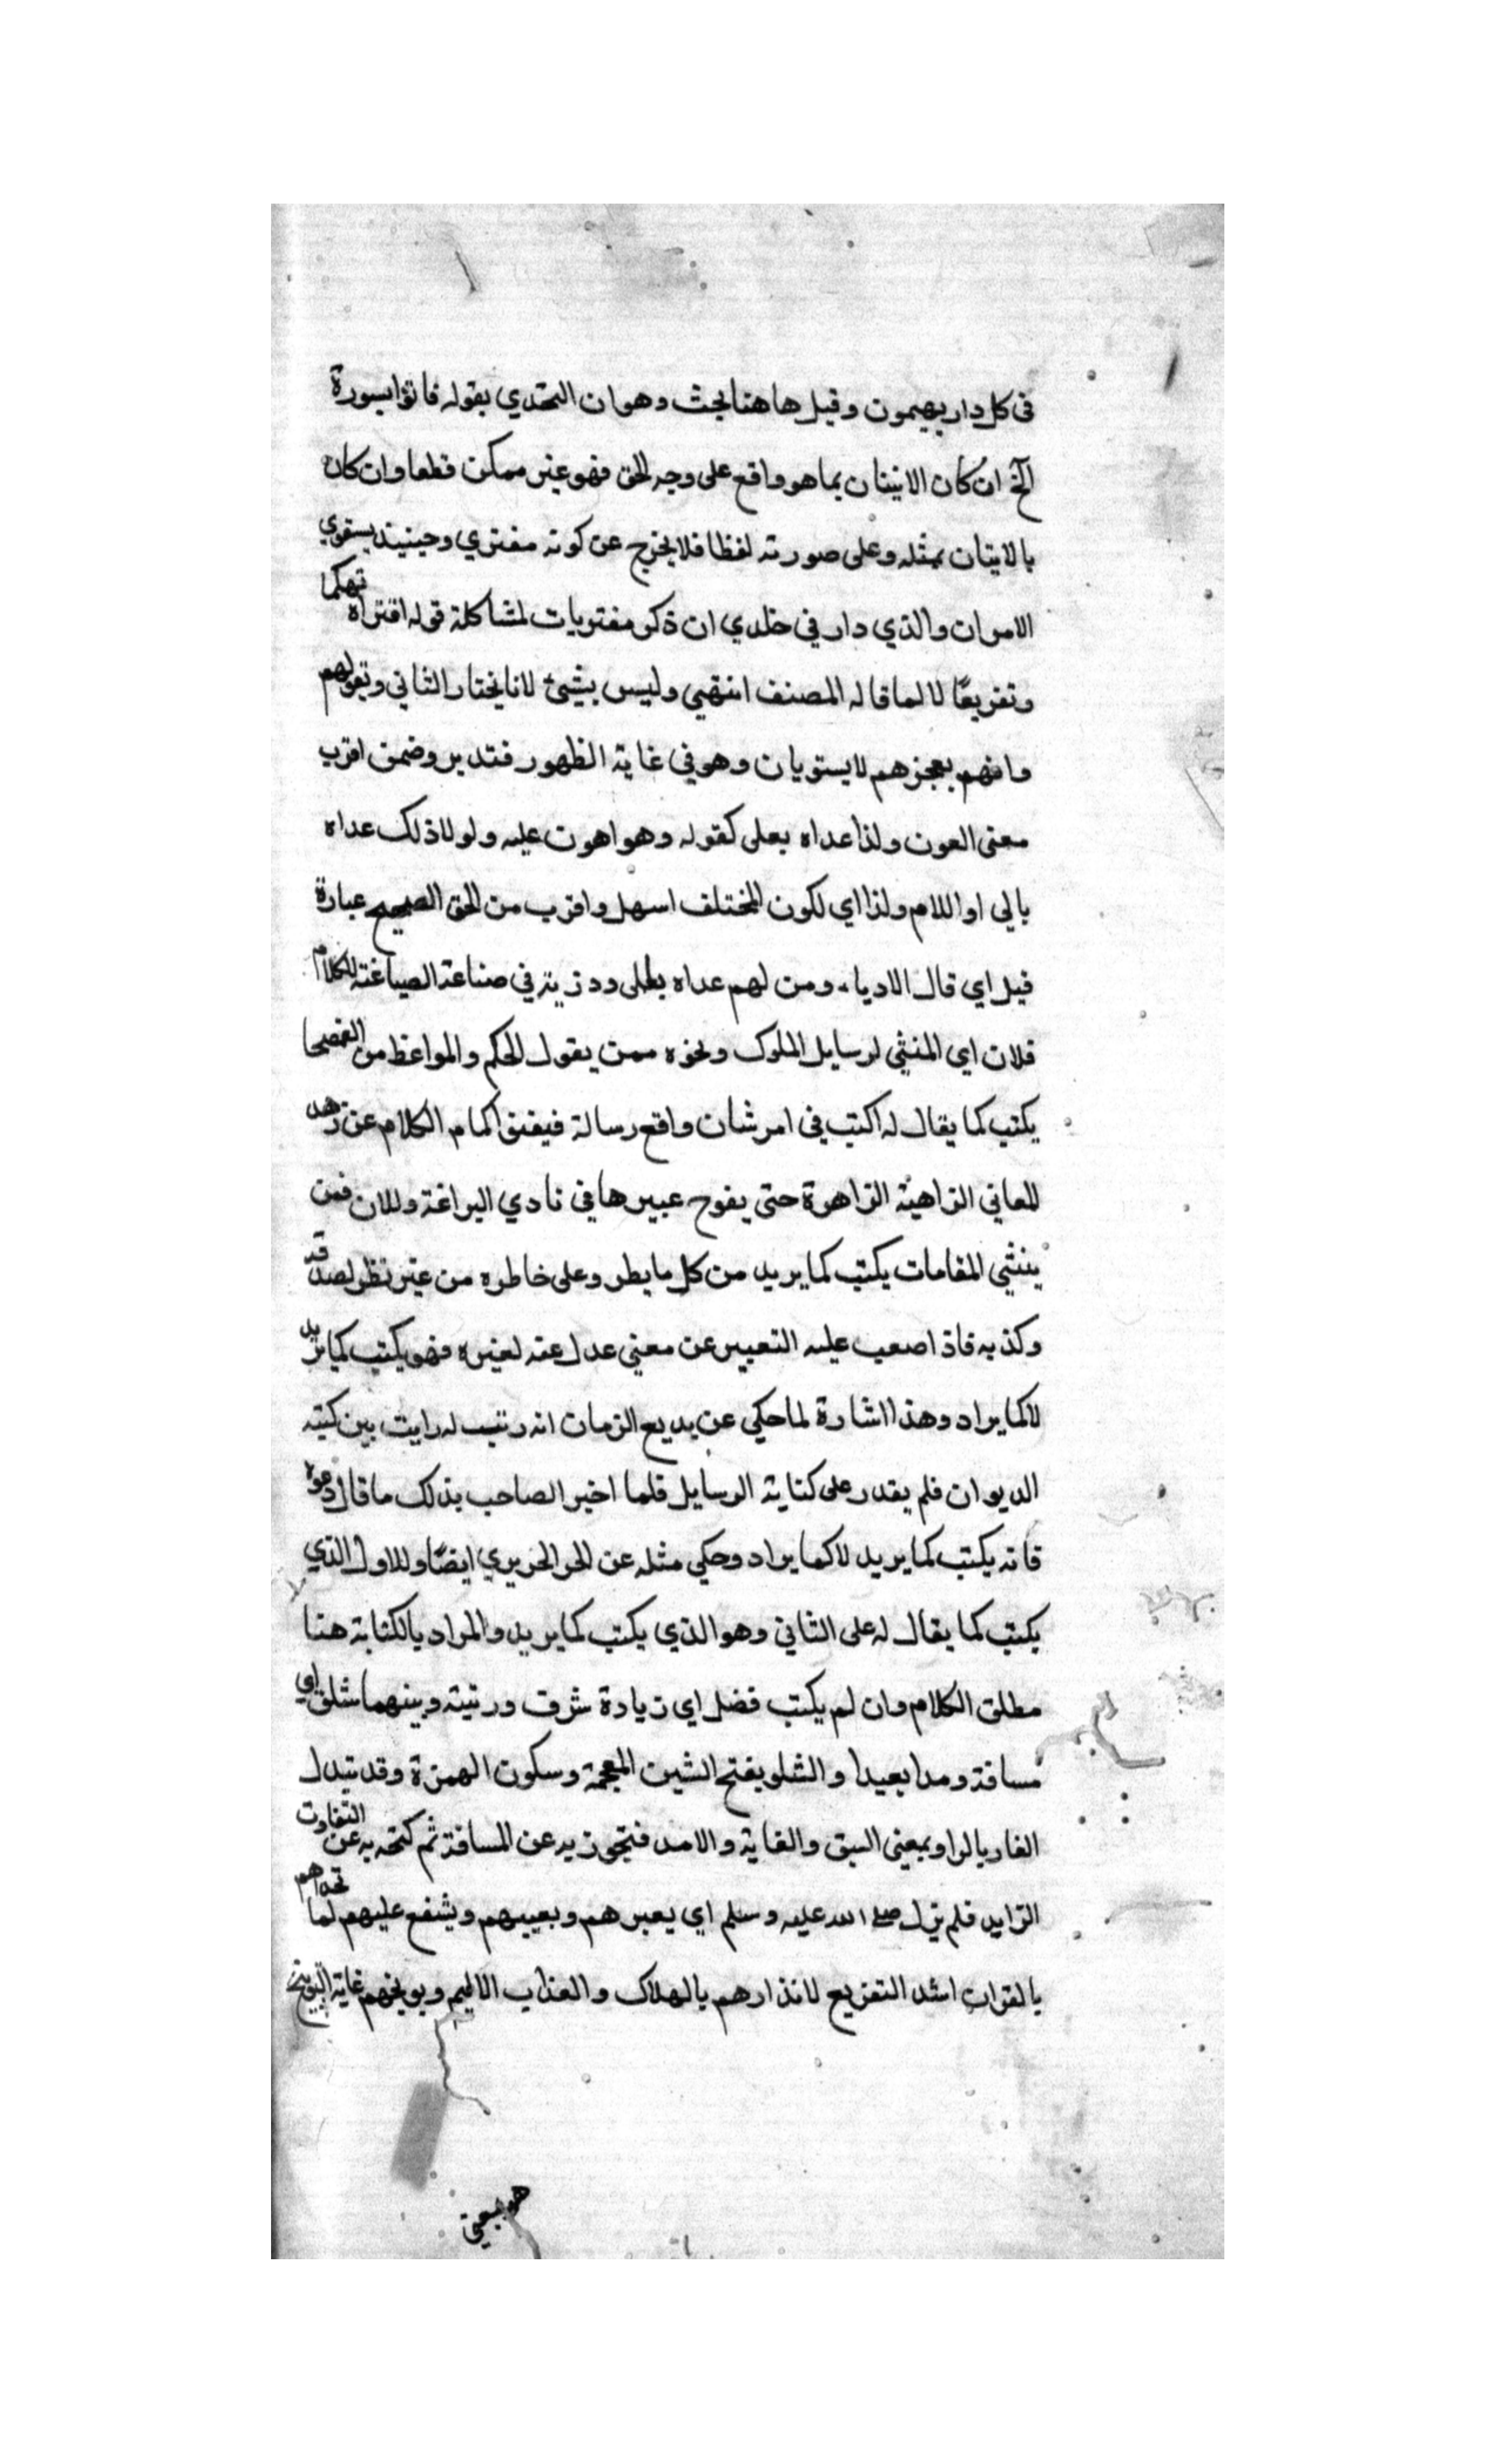 فى كل دار يهيمون وقيل هاهنا بحث وهو ان التحدي بقوله فاتوا بسورة
الخ ان كان الاتيان بما هو واقع على وجه الحق فهو غير ممكن قطعا وان كان
بالايتان بمثله وعلى صورته لفظا فلا يخرج عن كونه مفتري وحينيذ يستوي
الامران والذي دار في خلدي ان ذكر مفتريات لمشاكلة قوله افتراه تهكما
وتفريعًا لا لما قاله المصنف انتهي وليس بشيئ لانا نختار الثاني وتقولهم
وافهم بعجزهم لا يستويان وهو في غاية الظهور فتدبر وضمن اقرب
معنى العون ولذا عداه بعلى كقوله وهو اهون عليه ولولا ذلك عداه
بالي او اللام ولذا اي لكون المختلف اسهل واقرب من الحق الصحيح عبارة
قيل اي قال الادباء ومن لهم عداه بعلى ودزية في صناعة الصياغة للكلام
فلان اي المنشي لرسايل الملوك ونحوه ممن يقول الحكم والمواعظ من الفصحا
يكتب كما يقال له اكتب في امر شان واقع رسالة فيفتق اكمام الكلام عن زهر
المعاني الزاهية الزاهرة حتى يفوح عبيرها في نادي البراغة وللان فمن
ينشي المقامات يكتب كما يريد من كل ما يطر وعلى خاطره من غير نظر لصدقه
وكذبه فاذا صعب عليه التعبير عن معني عدل عنه لغيره فهو يكتب كما يريد
لا كما يراد وهذا اشارة لما حكي عن بديع الزمان انه رتب له رايت بين كتبه
الديوان فلم يقدر على كتابة الرسايل فلما اخبر الصاحب بذلك ما قال دعوه
فانه يكتب كما يريد لا كما يراد وحكي مثله عن الحر الحريري ايضًا وللاول الذي
يكتب كما يقال له على الثاني وهو الذي يكتب كما يريد والمراد بالكتابة هنا
مطلق الكلام وان لم يكتب فضل اي زيادة شرف ورتبة وبينهما شلق اي
مسافة ومدا بعيدا والشلو بفتح الشين المعجمة وسكون الهمزة وقد تبدل
الفا ريا لواو بمعني السبق والغاية والامد فتجوز به عن المسافة ثم كتحه به عن التفاوت
الزايد فلم يزل صلى الله عليه وسلم اي يعيرهم ويعيبهم ويشنع عليهم لما تحداهم
بالقران اشد التفريع لانذارهم بالهلاك والعذاب الاليم ويوبخهم غاية التوبيخ
هو بمعنى